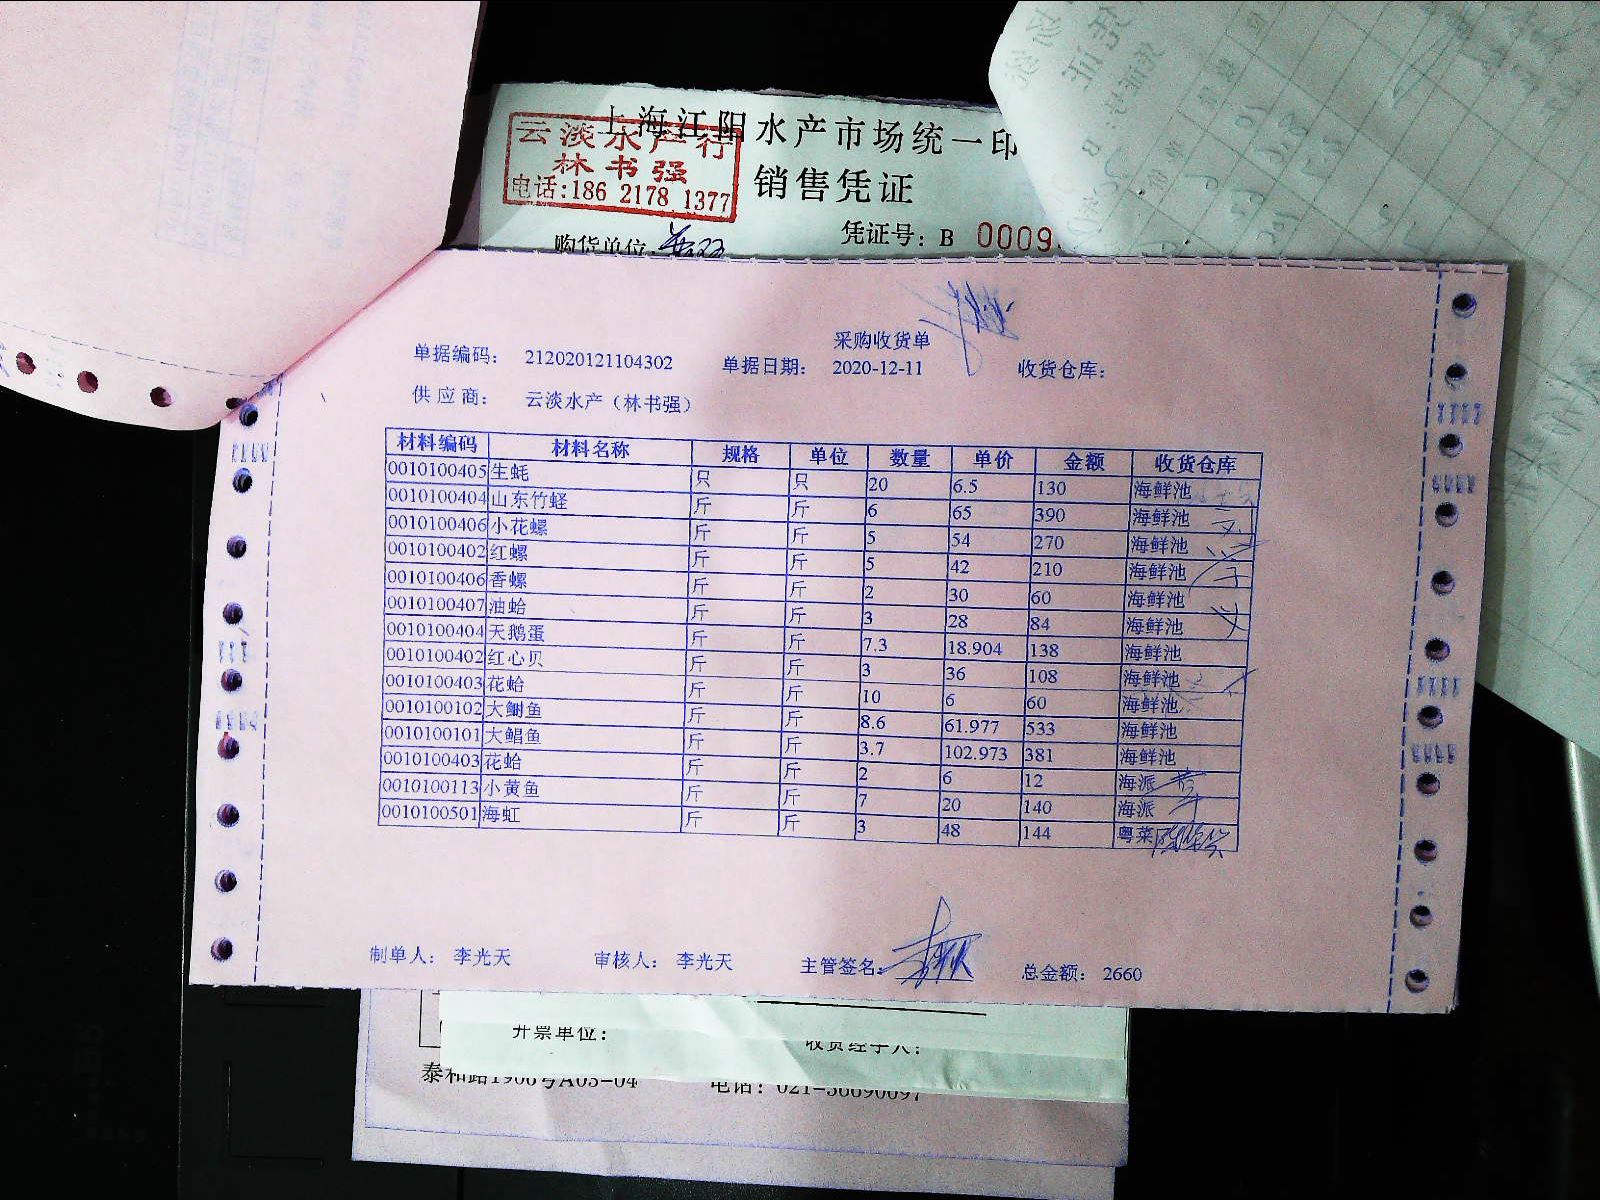 上海江阳水产市场统一印
云淡水产行
林书强
电话:186 2178 1377
销售凭证
购货单位:
凭证号: B 0009
采购收货单
单据编码: 212020121104302 单据日期: 2020-12-11 收货仓库:
供应商: 云淡水产（林书强）
材料编码 材料名称 规格 单位 数量 单价 金额 收货仓库
0010100405 生蚝 只 只 20 6.5 130 海鲜池
0010100404 山东竹蛏 斤 斤 6 65 390 海鲜池
0010100406 小花螺 斤 斤 5 54 270 海鲜池
0010100402 红螺 斤 斤 5 42 210 海鲜池
0010100406 香螺 斤 斤 2 30 60 海鲜池
0010100407 油蛤 斤 斤 3 28 84 海鲜池
0010100404 天鹅蛋 斤 斤 7.3 18.904 138 海鲜池
0010100402 红心贝 斤 斤 3 36 108 海鲜池
0010100403 花蛤 斤 斤 10 6 60 海鲜池
0010100102 大鲥鱼 斤 斤 8.6 61.977 533 海鲜池
0010100101 大鲳鱼 斤 斤 3.7 102.973 381 海鲜池
0010100403 花蛤 斤 斤 2 6 12 海派
0010100113 小黄鱼 斤 斤 7 20 140 海派
0010100501 海虹 斤 斤 3 48 144 粤菜
制单人: 李光天 审核人: 李光天 主管签名: 总金额: 2660
开票单位:
收货经手人:
泰和路1908号A05-04 电话: 021-56690097